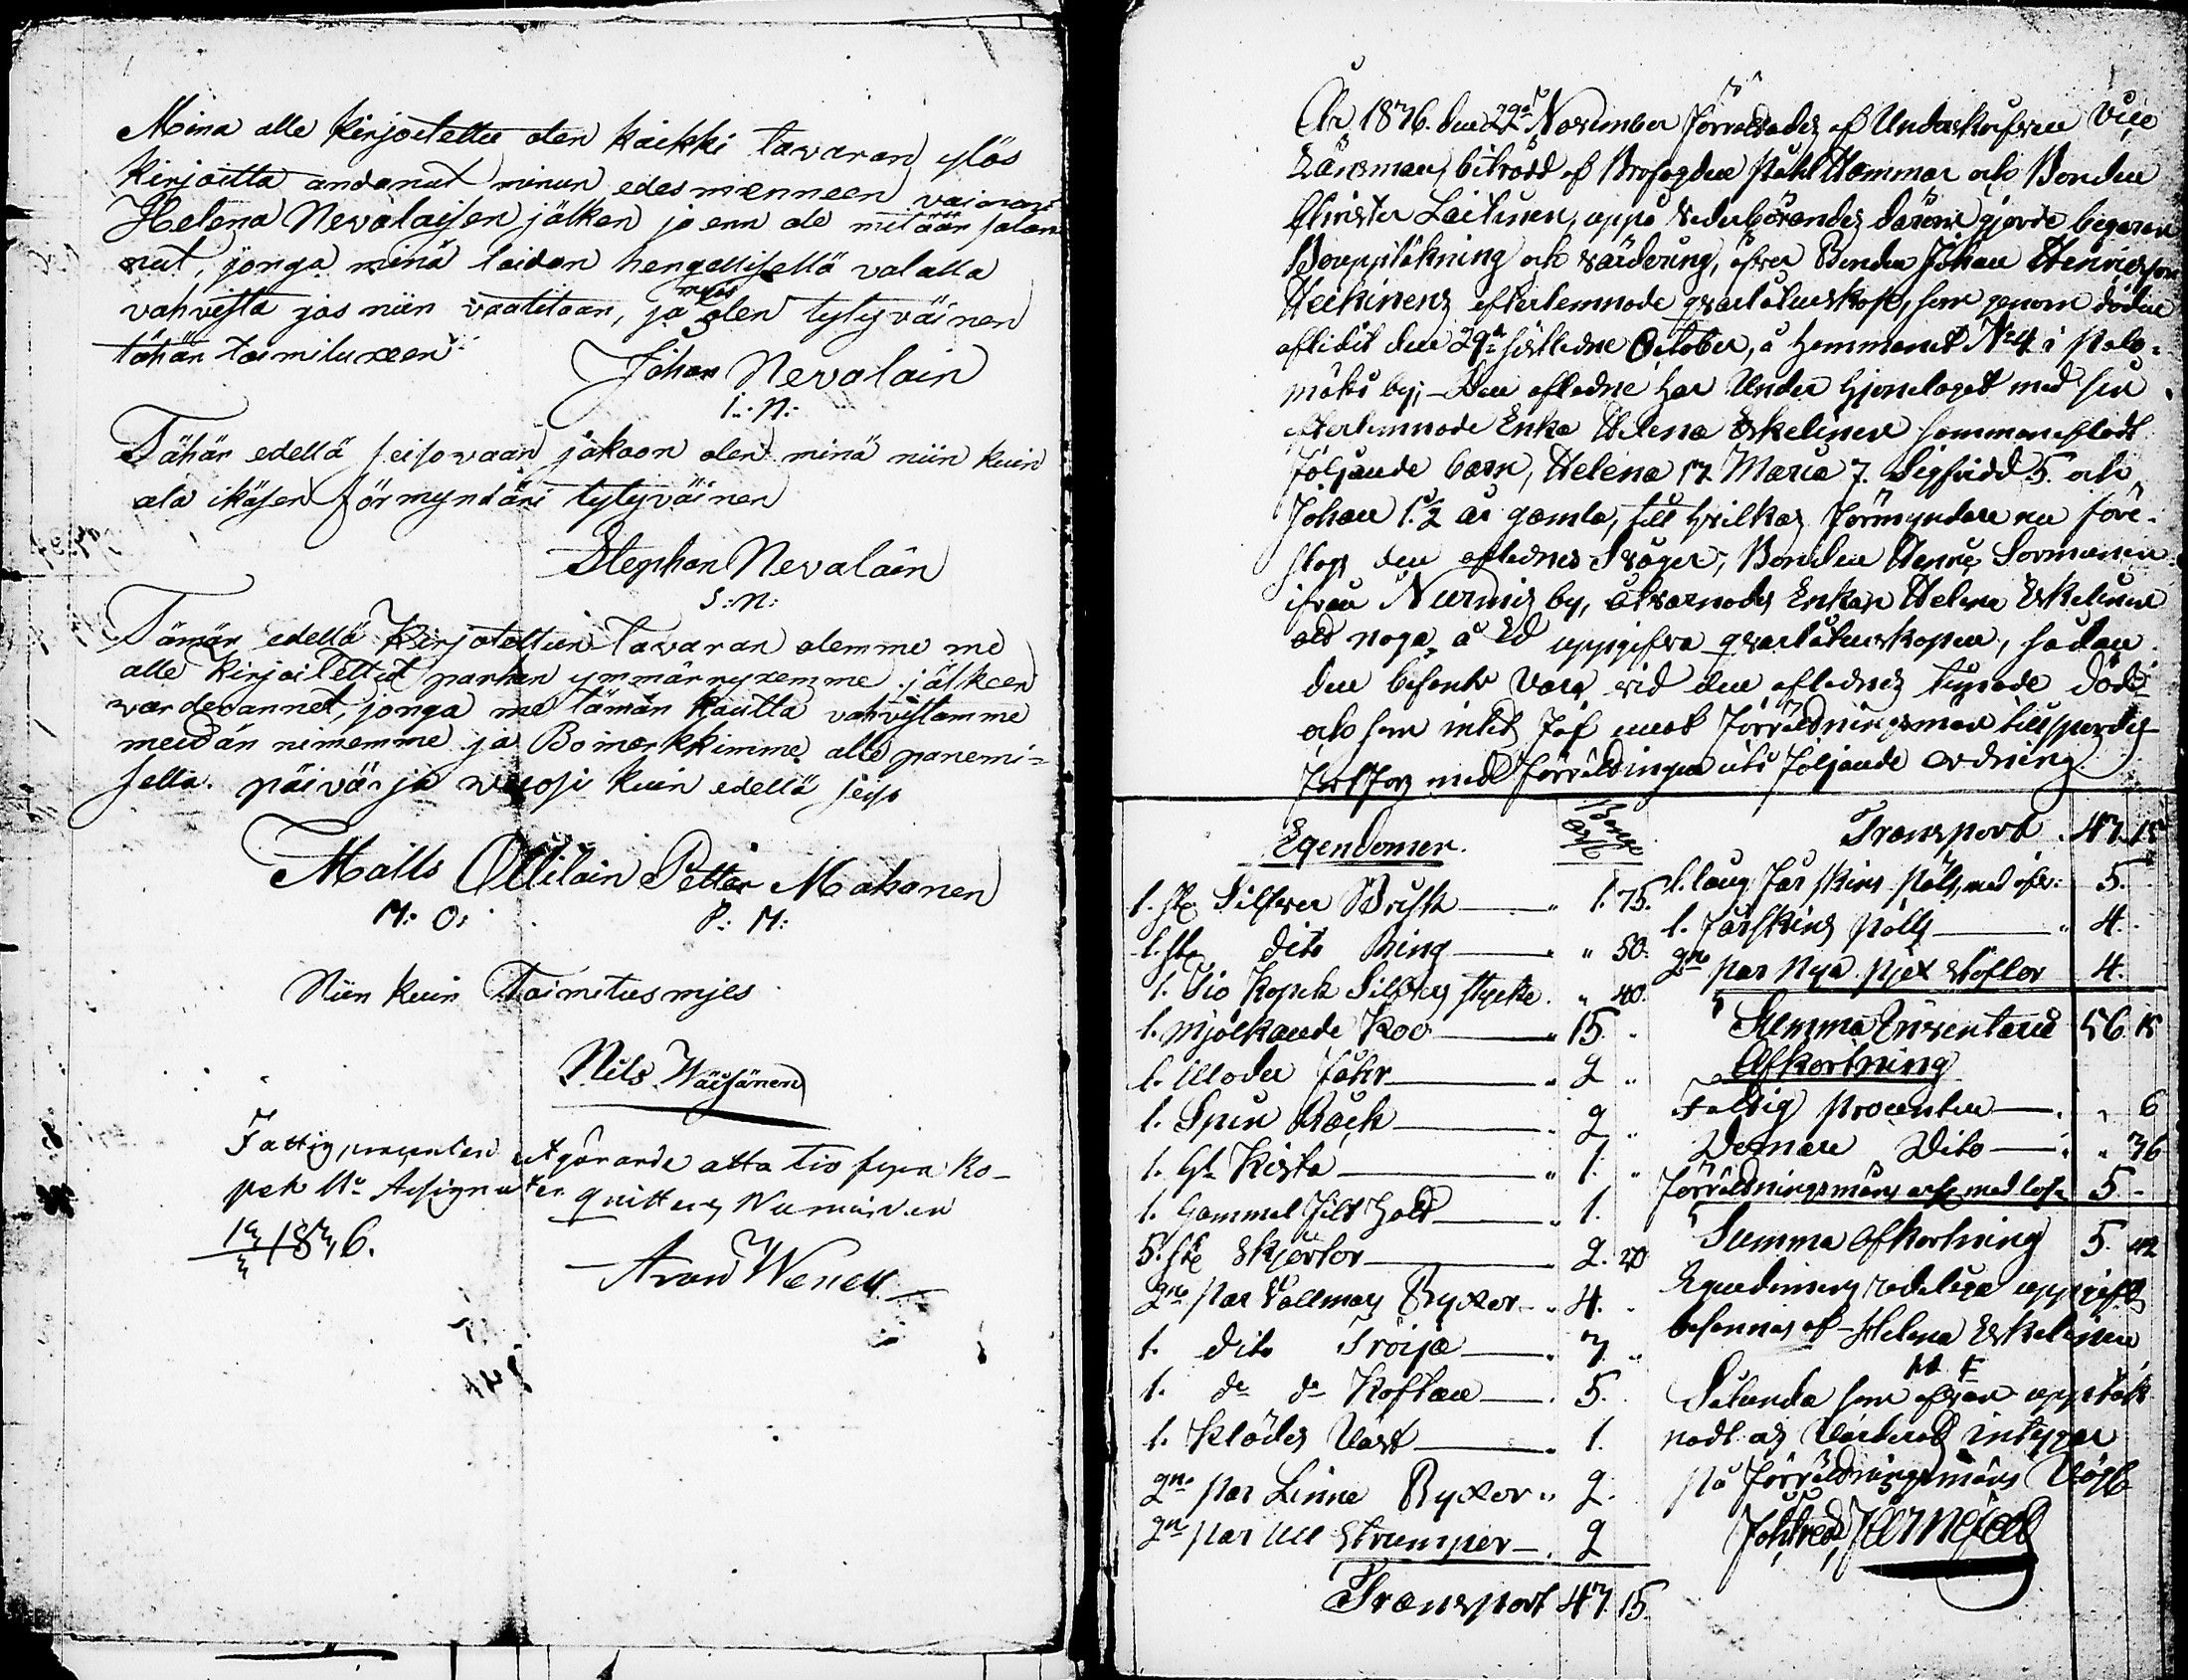 Mina alle kirjoitettu olen kaikki tavaran ylös
kirjoitta andanut minun edesmenneen vaimoni
Helena Nevalaisen jälken ja enn ole mitään salan
nut, jonga minä taidan hengellisellä valalla
vahvista jos niin vaatitaan, ja myös olen tytyväinen
tähän toimituxeen
Johan Nevalain
I: N:
Tähän edellä seisovaan jakoon olen minä niin kuin
ala ikäsen förmyndäri tytyväinen
Stephan Nevalain
S: N:
Tämän edellä kirjotettun tavaran olemme me
alle kirjoitettut parhan ymmärryxemme jälkeen
värderannet, jonga me tämän kautta vahvistamme
meidän nimemme ja Bomärkkimme alle panemi-
sella. päivä ja wuosi kuin edellä seiso
Matts Ollilain Petter Mahonen
M: O: P: M:
Niin kuin Toimitusmies
Nils Wäisänen
Fattig procenten utgörande åtta tio fyra Ko-
pek Assignater quitteras Nurmis den
1876.
Aron Wenell
År 1876. den 29de November förrättades af Underskrifven Vice
Länsman, biträdd af Brofogden Påhl Hammar och Bonden
Christer Laitinen, uppå vederbörandes därom gjorde begäran
Bouppteckning och värdering, öfver Bonden Johan Henricsson
Heikinens efterlemnade qvarlåtenskap, som genom döden
aflidit den 29de sistledne October, å hemmanet No 4 i Palo-
mäki by; Den aflidne har under hjonelaget med sin
efterlemnade Enka Helena Eskelinen sammanaflat
följande barn, Helena 17. Maria 7. Sigfridd 5. och
Johan 1 1/2 år gamla, till hvilkas förmyndare nu före-
slogs den aflidnes Svåger, Bonden Henric Sormunen
ifrån Nurmis by, åtvarnades Enkan Helena Eskelinen
at noga å Ed uppgifva qvarlåtenskapen, sådan
den befants vara vid den aflidnes timade död
och som intet jäf emot förrättningsman tillspordes
företogs med förrättningen uti följande ordning.
Egendomen.
1. st. Silfver Brisk " 1. 75.
1. st. dito Ring " " 50.
1. Tio Kopek Silfver stycke " 40.
1. mjölkande Koo " 15. "
1. Moder Fåhr " 2 "
1. Spin Råck " 2 "
1. Gl. Kista " 1. "
1. Gammal Filt Hatt " 1.
5. st. Skjortor " 2. 20
2ne par Vallmas Byxor " 4. "
1. dito Tröija " 7 "
1. do do Kaftan " 5.
1. Klädes Väst " 1.
2ne par Linne Byxor " 2.
2ne par ull Strumpor " 2
Transport 47. 15.
Transport 47. 15
1. lång fårskins päls, med 5.
1. fårskins päls " 4.
2ne par nya pjex stöflor 4.
Summa Inventarie 56. 15
Afkortning
Fattig procenten " " 6
Domare Dito " " 36
förrättningsmans arfe med 5. -
Summa Afkortning 5. 42
Egendomens redeliga uppgift
besannas af Helena Eskelinen
H E
Sålunda som ofvan uppteck-
nadt och Värderat intygar
på förrättningsmans Vägnar
Joh: Fred: Järnefelt